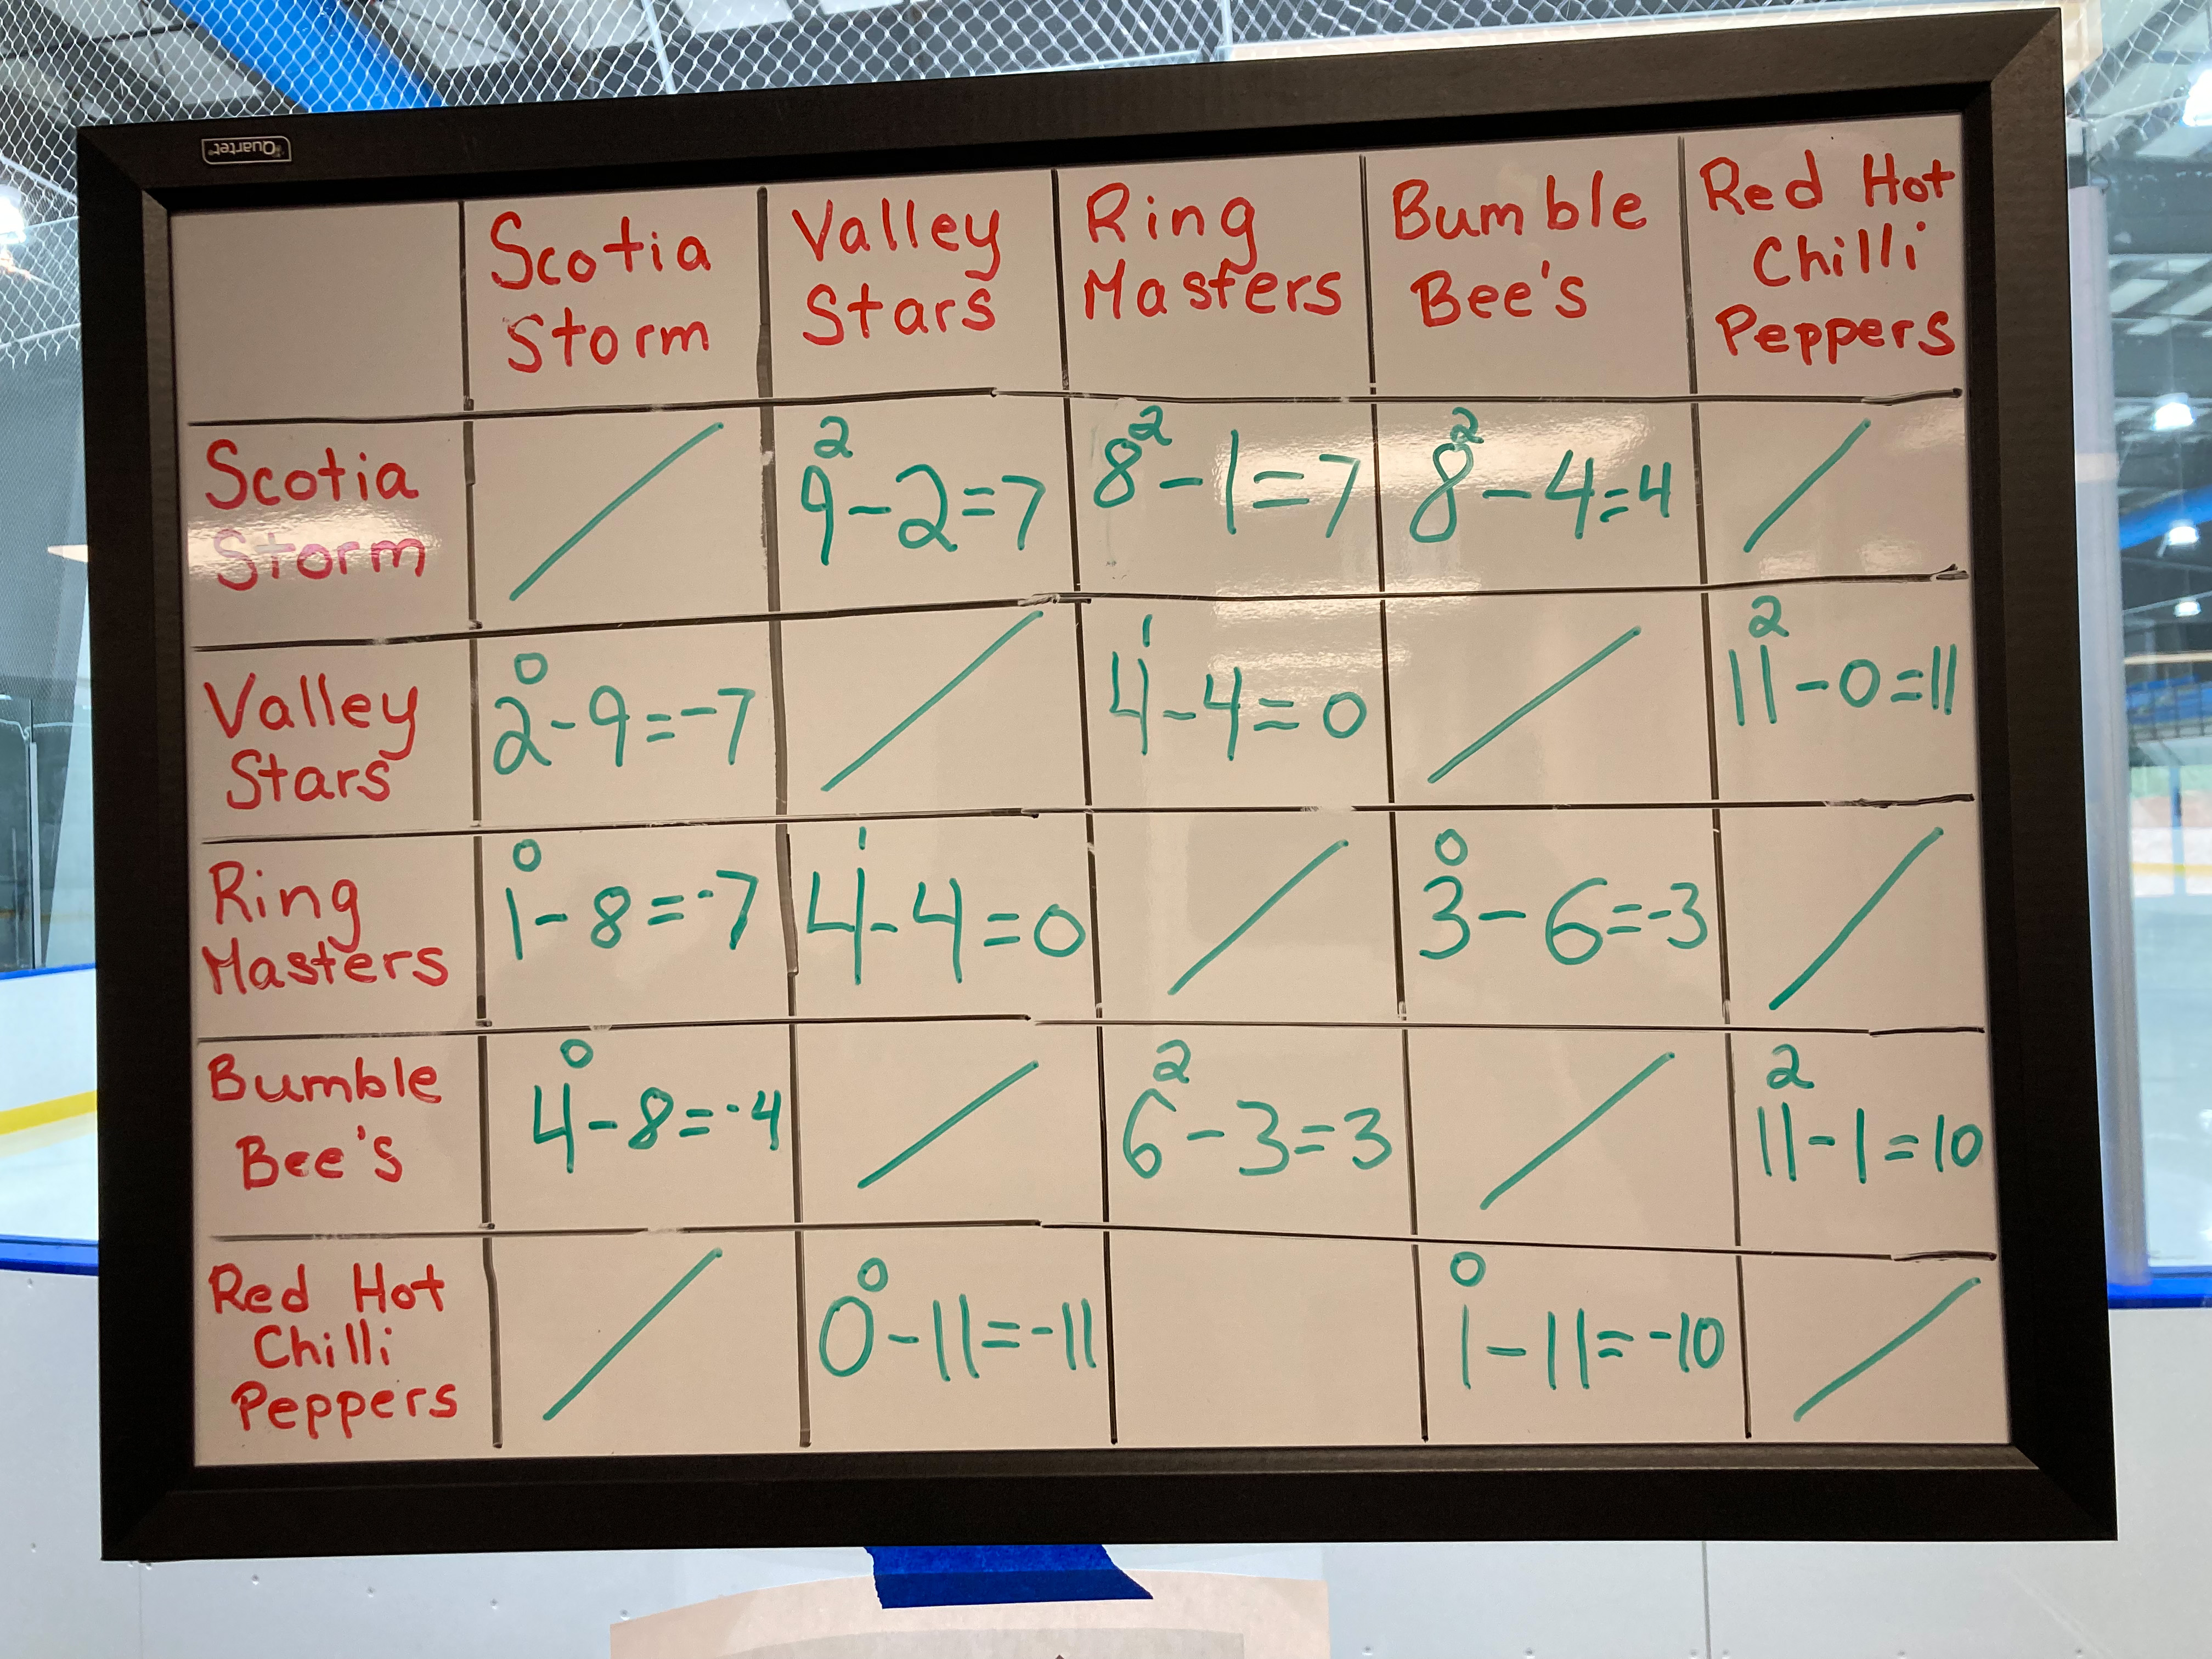 Quartet
Scotia
Storm
Valley
Stars
Ring
Masters
Bumble
Bee's
Red Hot
Chilli
Peppers
Scotia
Storm
2
9-2=7
2
8-1=7
2
8-4=4
Valley
Stars
0
2-9=-7
1
4-4=0
2
11-0=11
Ring
Masters
0
1-8=-7
1
4-4=0
0
3-6=-3
Bumble
Bee's
0
4-8=-4
2
6-3=3
2
11-1=10
Red Hot
Chilli
Peppers
0
0-11=-11
0
1-11=-10